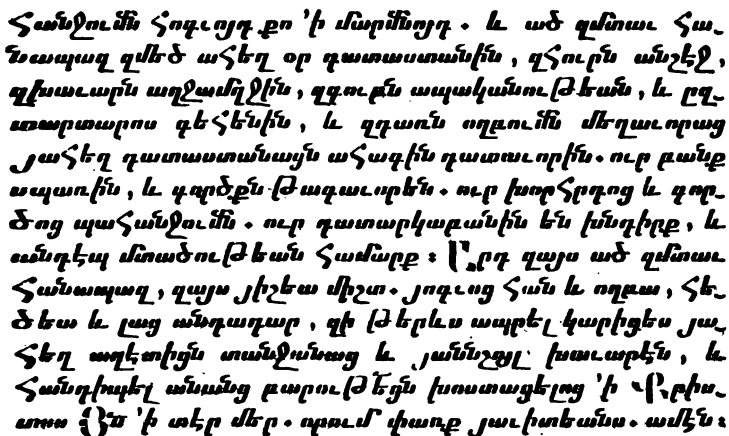 Հանջումն հոգւոյդ քո ՚ի մարմնոյդ. և ած զմտաւ հա֊
նապազ զմեծ ահեղ օր դատաստանին, զհուրն անշէջ,
զխաւարն աղջամղջին, զգուբն ապականութեան, և ըզ֊
տարտարոս գեհենին, և զդառն ողբումն մեղաւորաց
յահեղ դատաստանայն ահագին դատաւորին. ուր բանք
սպառին, և գործքն թագաւորեն. ուր խորհրդոց և գոր֊
ծոց պահանջումն. ուր դատարկաբանին են խնդիրք, և
անդէպ մտածութեան համարք: Արդ զայս ած զմտաւ
հանապազ, զայս յիշեա միշտ. յոգւոց հան և ողբա, հե֊
ծեա և լաց անդադար, զի թերևս ապրել կարիցես յա֊
հեղ աղէտիցն տանջանաց և յաննշոյլ խաւարէն, և
հանդիպել անանց բարութեցն խոստացելոց ՚ի Քրիս֊
տոս Յս ՚ի տէր մեր. որում փառք յաւիտեանս. ամէն: